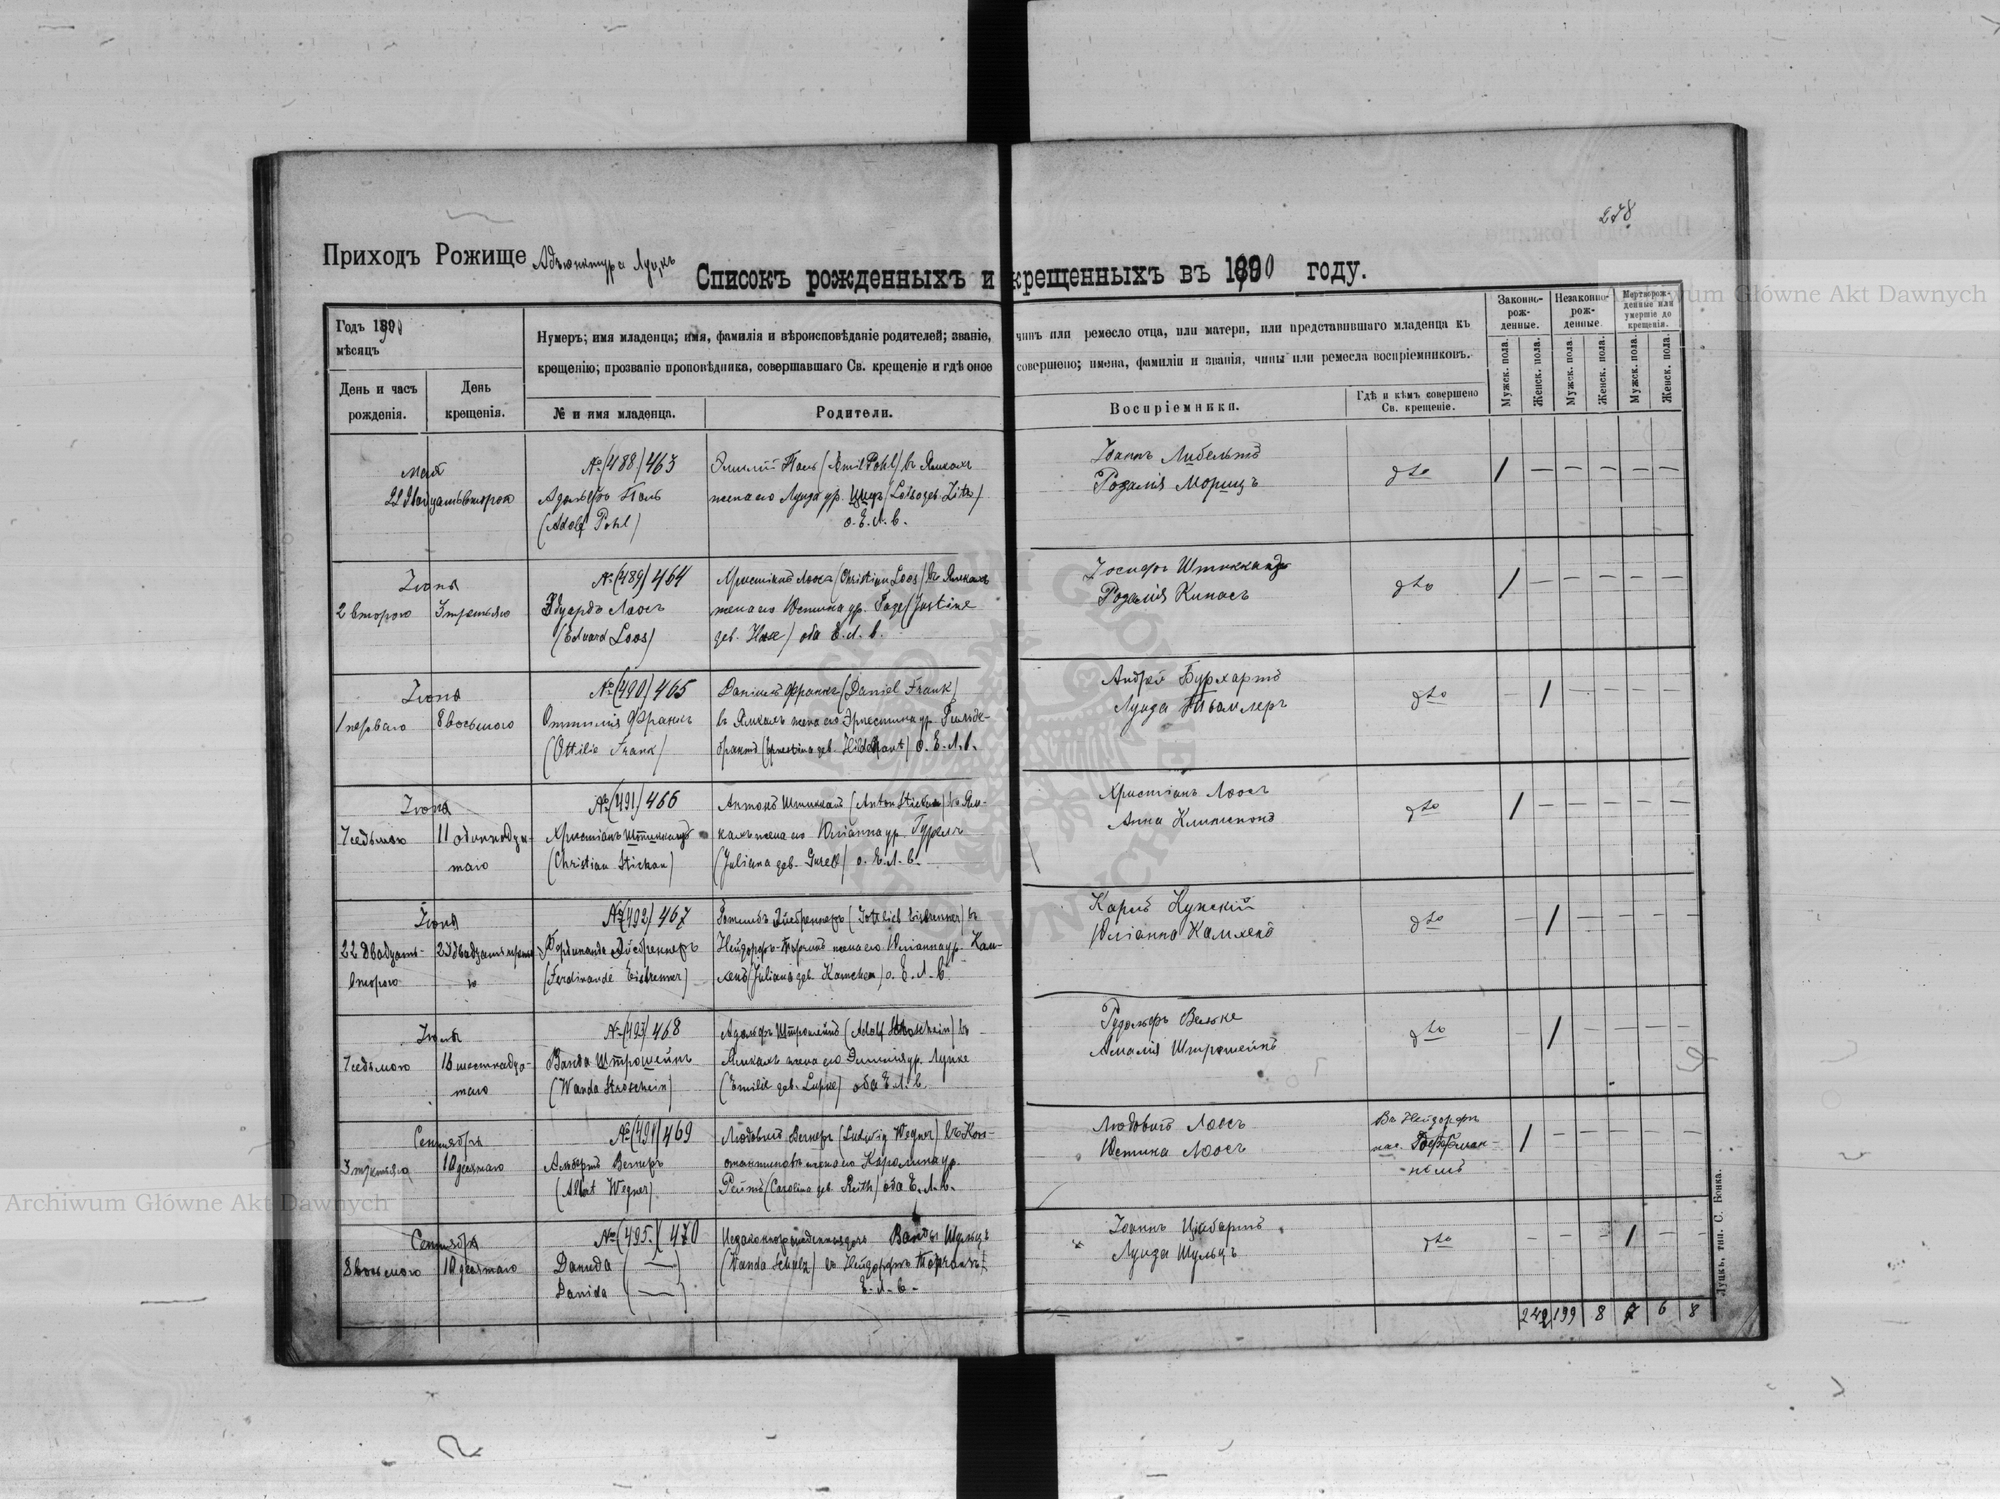 278
Приходъ Рожище Адъюнктура Луцкъ
Списокъ рожденныхъ и крещенныхъ въ 1890 году.
Годъ 1890
мѣсяцъ
День и часъ
рожденія.
День
крещенія.
Нумеръ; имя младенца; имя, фамилія и вѣроисповѣданіе родителей; званіе, чинъ или ремесло отца, или матери, или представившаго младенца къ
крещенію; прозваніе проповѣдника, совершавшаго Св. крещеніе и гдѣ оное совершено; имена, фамиліи и званія, чины или ремесла воспріемниковъ.
№ и имя младенца.
Родители.
Воспріемники.
Гдѣ и кѣмъ совершено
Св. крещеніе.
Законно-
рож-
денные.
Незаконно-
рож-
денные.
Мертворож-
денные или
умершіе до
крещенія.
Мужск. пола.
Женск. пола.
Мужск. пола.
Женск. пола.
Мужск. пола.
Женск. пола.
Мая
22
№ (488) 463
Адольфъ Поль
(Adolf Pohl)
Эмилій Поль (Emil Pohl) въ Ямкахъ
жена его Луиза ур.
о. Е. Л. в.
Іоаннъ Либельтъ
РозаліяМорицъ
dto
Іюня
2 второго
3 третьяго
№ (489) 464
Эдуардъ Лоосъ
(Eduard Loos)
Христіанъ Лоосъ (Christian Loos) въ Ямкахъ
жена его Юстина ур. (Justine
дев. ) оба Е. Л. в.
Іосифъ Штикканъ
Розалія Кинасъ
dto
Іюня
1 перваго
8 восьмого
№ (490) 465
Оттилія Франкъ
(Ottilie Frank)
Даніилъ Франкъ (Daniel Frank)
въ Ямкахъ жена его Эрнестина ур. Гильде-
брантъ (Ernestina дев. Hildebrant) о. Е. Л. в.
Андрей Бурхартъ
Луиза
dto
Іюня
7 седьмого
11 одиннадца-
таго
№ (491) 466
Христіанъ Штикканъ
(Christian Stickan)
Антонъ Штикканъ (Anton Stickan) въ Ям-
кахъ жена его Юліанна ур. Гурель
(Juliana дев. Gurell) о. Е. Л. в.
Христіанъ Лоосъ
Анна
dto
Іюня
22 двадцать-
второго
23
№ (492) 467
Фердинанда Эйсбреннеръ
(Ferdinande Eisbrenner)
Готлибъ Эйсбреннеръ (Gottlieb Eisbrenner) въ
Нейдорфъ-Торчинъ жена его Юліанна ур. Кам-
хенъ (Juliana дев. Kamchen) о. Е. Л. в.
Карлъ Кунскій
Юліанна Камхенъ
dto
Іюля
7 седьмого
16 шестнадца-
таго
№ (493) 468
Ванда Штрошейнъ
(Wanda Stroschein)
Адольфъ Штрошейнъ (Adolf Stroschein) въ
Ямкахъ жена его Эмилія ур. Лупке
(Emilie дев. Lupke) оба Е. Л. в.
Рудольфъ Вельке
Амалія Штрошейнъ
dto
Сентября
3 третьяго
10 десятаго
№ (494) 469
Альбертъ Вегнеръ
(Albert Wegner)
Людовигъ Вегнеръ (Ludwig Wegner) въ Кон-
стантиновъ жена его Каролина ур.
Рейтъ (Carolina дев. Reith) оба Е. Л. в.
Людовигъ Лоосъ
Юстина Лоосъ
Въ Нейдорфъ
пас. Гоффман-
номъ
Сентября
8 восьмого
10 десятаго
№ (495) 470
Давида
Davida
Незаконнорожденная дочь Ванды Шульцъ
(Wanda Schulz) въ Нейдорфъ Торчинъ
Е. Л. в.
Іоаннъ
Луиза Шульцъ
dto
199 8 6 8
Луцкъ, тип. С. Бонка.
Archiwum Główne Akt Dawnych
Archiwum Główne Akt Dawnych